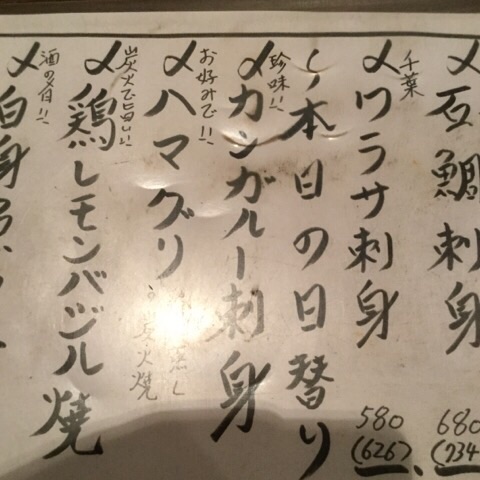 〆石鯛刺身 680
(734
千葉
〆ワラサ刺身 580
(626)
本日の日替り
珍味!!
〆カンガルー刺身
お好みで!!
〆ハマグリ
蒸し
炭火焼
炭火で旨い!!
〆鶏レモンバジル焼
酒の肴!!
〆白身